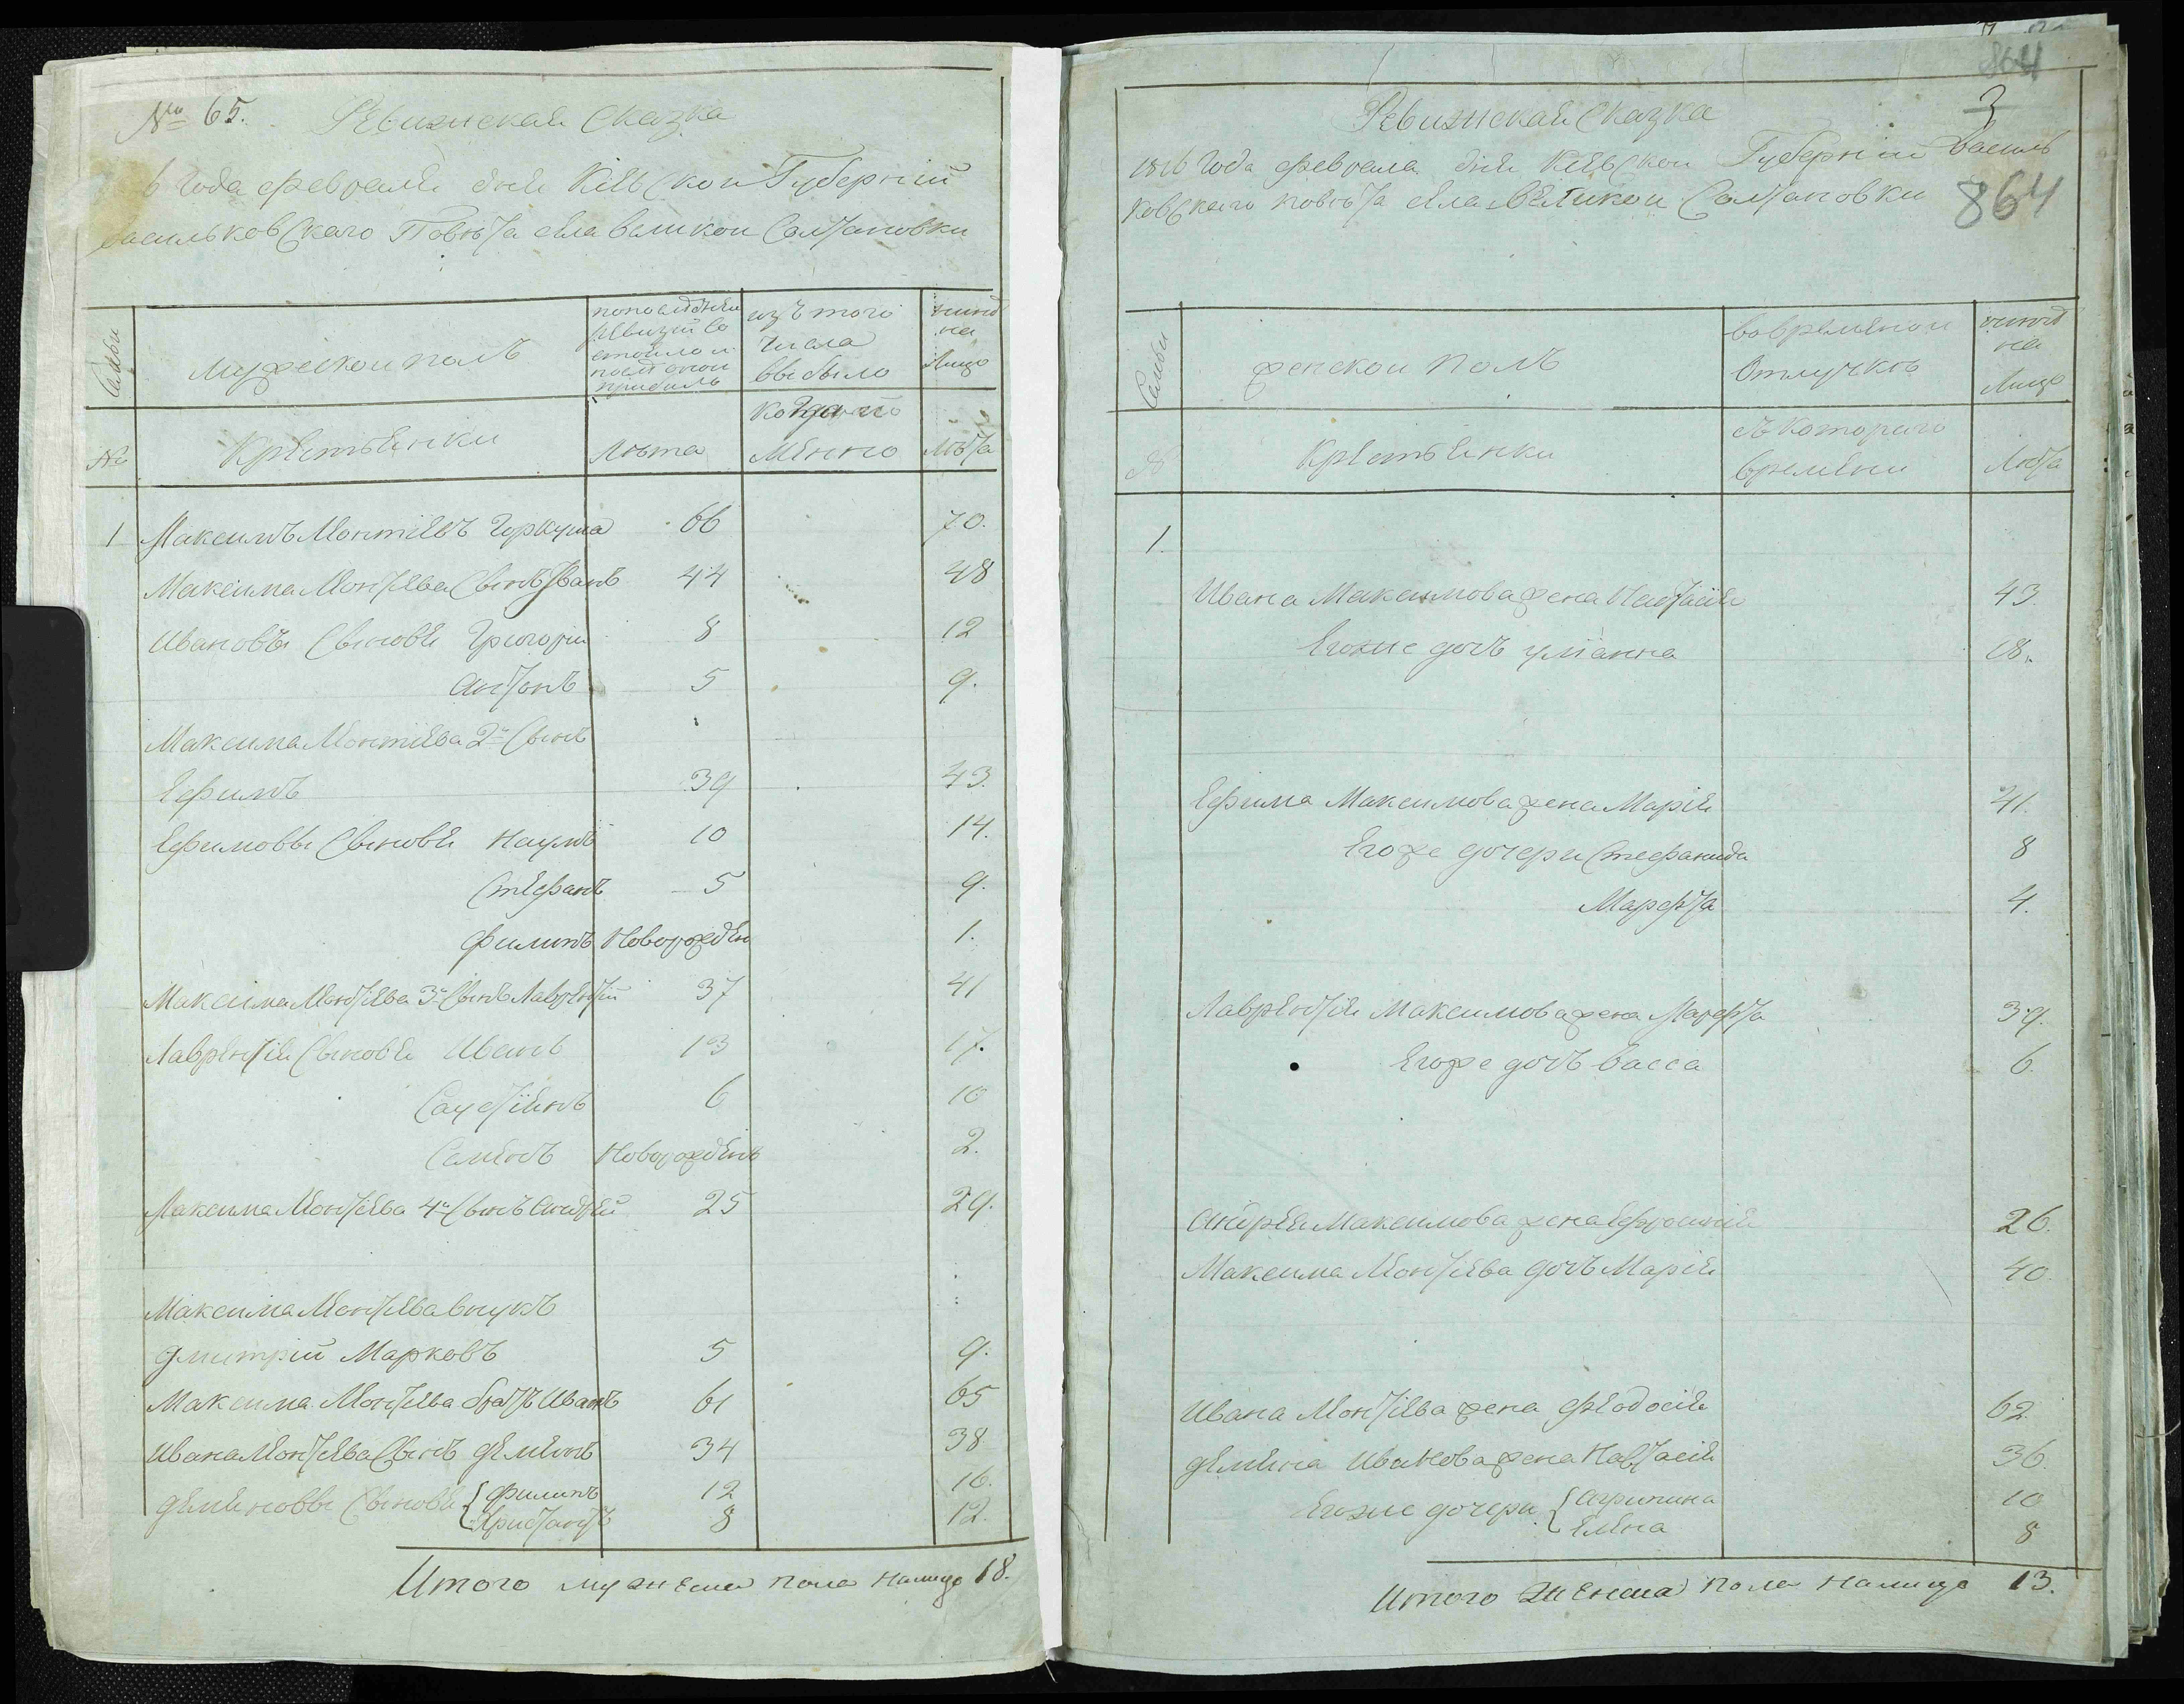 № 65. Ревижскаѧ Сказка
6 Года февраля дня Кіевской Губерній
васильковскаго Повѣта села великой Солтановки
Семьи
мужеской полъ
по последней ревизій состояло и после оной прибыло
изъ того числа выбыло
ныне на Лицо
№
Крестьянки
Лѣта
Когда имянно
Лѣта
1 Максимъ Монтіевъ Горкуша 66 70.
Максима Монтіева Сынъ Иванъ 44 48
Ивановы Сыновья Григорій 8 12
Антонъ 5 9.
Максима Монтіева 2й Сынъ
Ефимъ 39 43.
Ефимовы Сыновья Наумъ 10 14.
Стефанъ 5 9.
Филипъ Новорожден 1.
Максима Монтіева 3й Сынъ Лаврентій 37 41
Лаврентія Сыновья Иванъ 13 17.
6 10
Семенъ Новорожденъ 2.
Максима Монтіева 4й Сынъ Андрей 25 29.
Максима Монтіева внукъ
Дмитрій Марковъ 5 9.
Максима Монтіева братъ Иванъ 61 65
Ивана Монтіева Сынъ Деменъ 34 38
Деменовы Сыновья Филипъ 12 16.
8 12.
Итого мужеска пола налицо 18.
864
3
Ревижская Сказка
1816 Года февраля дня Кіевской Губерніи василь
ковскаго повѣта села великой Солтановки
864
Семьи
женской полъ
во временной Отлучкѣ
ныне на Лицо
№
Крестьянки
съ Котораго времени
Лѣта
1.
Ивана Максимова жена Настасія 43.
Егоже дочъ Уліанна 18.
Ефима Максимова жена Марія 41.
Егоже дочери Стефанида 8
Марфта 4.
Лаврентія Максимова жена Марфта 39.
Егоже дочъ васса 6.
Андрея Максимова жена Ефросинія 26.
Максима Монтіева дочъ Марія 40.
Ивана Монтіева жена Феодосія 62.
Демена Иванова жена Настасія 36.
Егоже дочери Агрипина 10
Елена 8
Итого женска пола налицо 13.